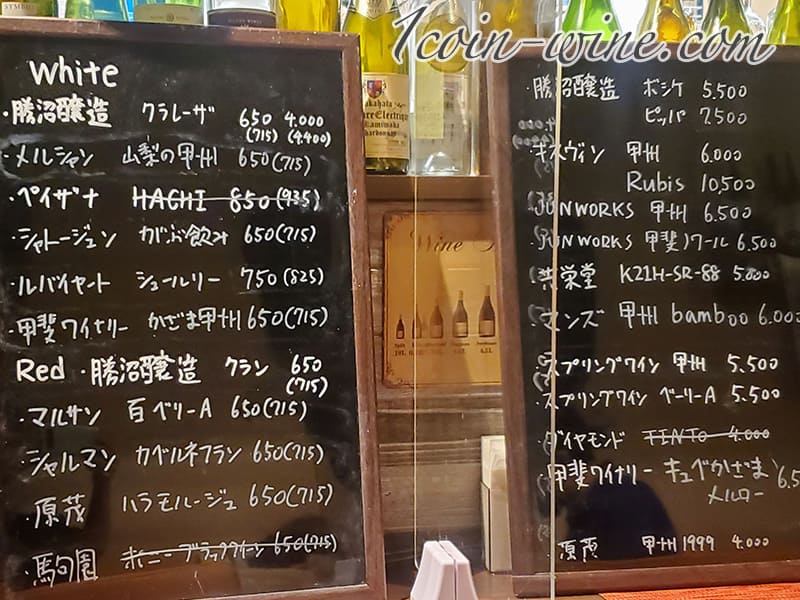 1coin-wine.com
White
・勝沼醸造 クラレーザ 650 4,000
(715) (4,400)
・メルシャン 山梨の甲州 650(715)
・ペイザナ HACHI 850(935)
・シャトージュン がぶ飲み 650(715)
・ルバイヤート シュールリー 750(825)
・甲斐ワイナリー かざま甲州 650(715)
Red ・勝沼醸造 クラン 650
(715)
・マルサン 百 ベリーA 650(715)
・シャルマン カベルネフラン 650(715)
・原茂 ハラモルージュ 650(715)
・駒園 ブラッククイーン 650(715)
・勝沼醸造 ボシケ 5,500
ピッパ 7,500
・キスヴィン 甲州 6,000
Rubis 10,500
・JUN WORKS 甲州 6,500
・JUN WORKS 甲斐ノワール 6,500
・共栄堂 K21H-SR-88 5,000
・マンズ 甲州 bamboo 6,000
・スプリングワイン 甲州 5,500
・スプリングワイン ベーリーA 5,500
・ダイヤモンド TINTO 4,000
・甲斐ワイナリー キュベかざま
メルロー
・原茂 甲州 1999 4,000
Wine
Chardonnay